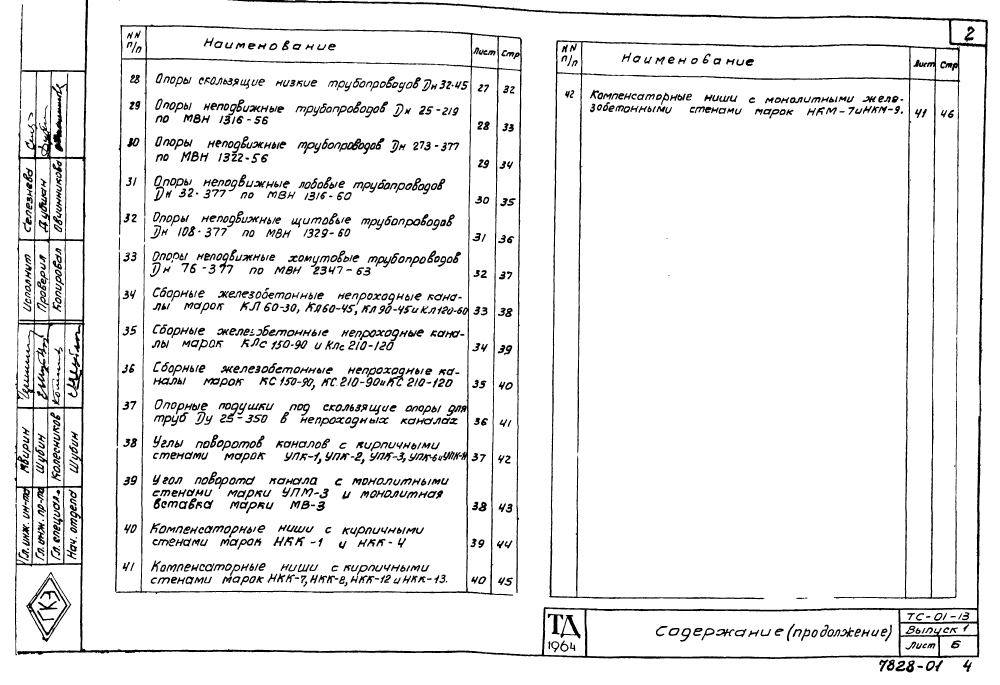 2
NN п/п Наименование Лист Стр
28 Опоры скользящие низкие трубопроводов Dн 32-45 27 32
29 Опоры неподвижные трубопроводов Dн 25-219
по МВН 1316-56 28 33
30 Опоры неподвижные трубопроводов Dн 273-377
по МВН 1322-56 29 34
31 Опоры неподвижные лобовые трубопроводов
Dн 32-377 по МВН 1316-60 30 35
32 Опоры неподвижные щитовые трубопроводов
Dн 108-377 по МВН 1329-60 31 36
33 Опоры неподвижные хомутовые трубопроводов
Dн 76-377 по МВН 2347-63 32 37
34 Сборные железобетонные непроходные кана-
лы марок КЛ 60-30, КЛ60-45, КЛ90-45 и КЛ120-60 33 38
35 Сборные железобетонные непроходные кана-
лы марок КЛс 150-90 и КЛс 210-120 34 39
36 Сборные железобетонные непроходные ка-
налы марок КС 150-90, КС 210-90 и КС 210-120 35 40
37 Опорные подушки под скользящие опоры для
труб Dу 25-350 в непроходных каналах 36 41
38 Углы поворотов каналов с кирпичными
стенами марок УПК-1, УПК-2, УПК-3, УПК-6 и 37 42
39 Угол поворота канала с монолитными
стенами марки УПМ-3 и монолитная
вставка марки МВ-3 38 43
40 Компенсаторные ниши с кирпичными
стенами марок НКК-1 и НКК-4 39 44
41 Компенсаторные ниши с кирпичными
стенами марок НКК-7, НКК-8, НКК-12 и НКК-13. 40 45
NN п/п Наименование Лист Стр
42 Компенсаторные ниши с монолитными желе-
зобетонными стенами марок НКМ-7 и НКМ-9. 41 46
Гл. инж. ин-та
Гл. инж. пр-та Шубин
Гл. специал. Колесников
Нач. отдела Шубин
Исполнит Селезнева
Проверил
Копировал Овчинникова
ГКЭ
ТД
1964
Содержание (продолжение)
ТС-01-13
Выпуск 1
Лист 6
7828-01 4